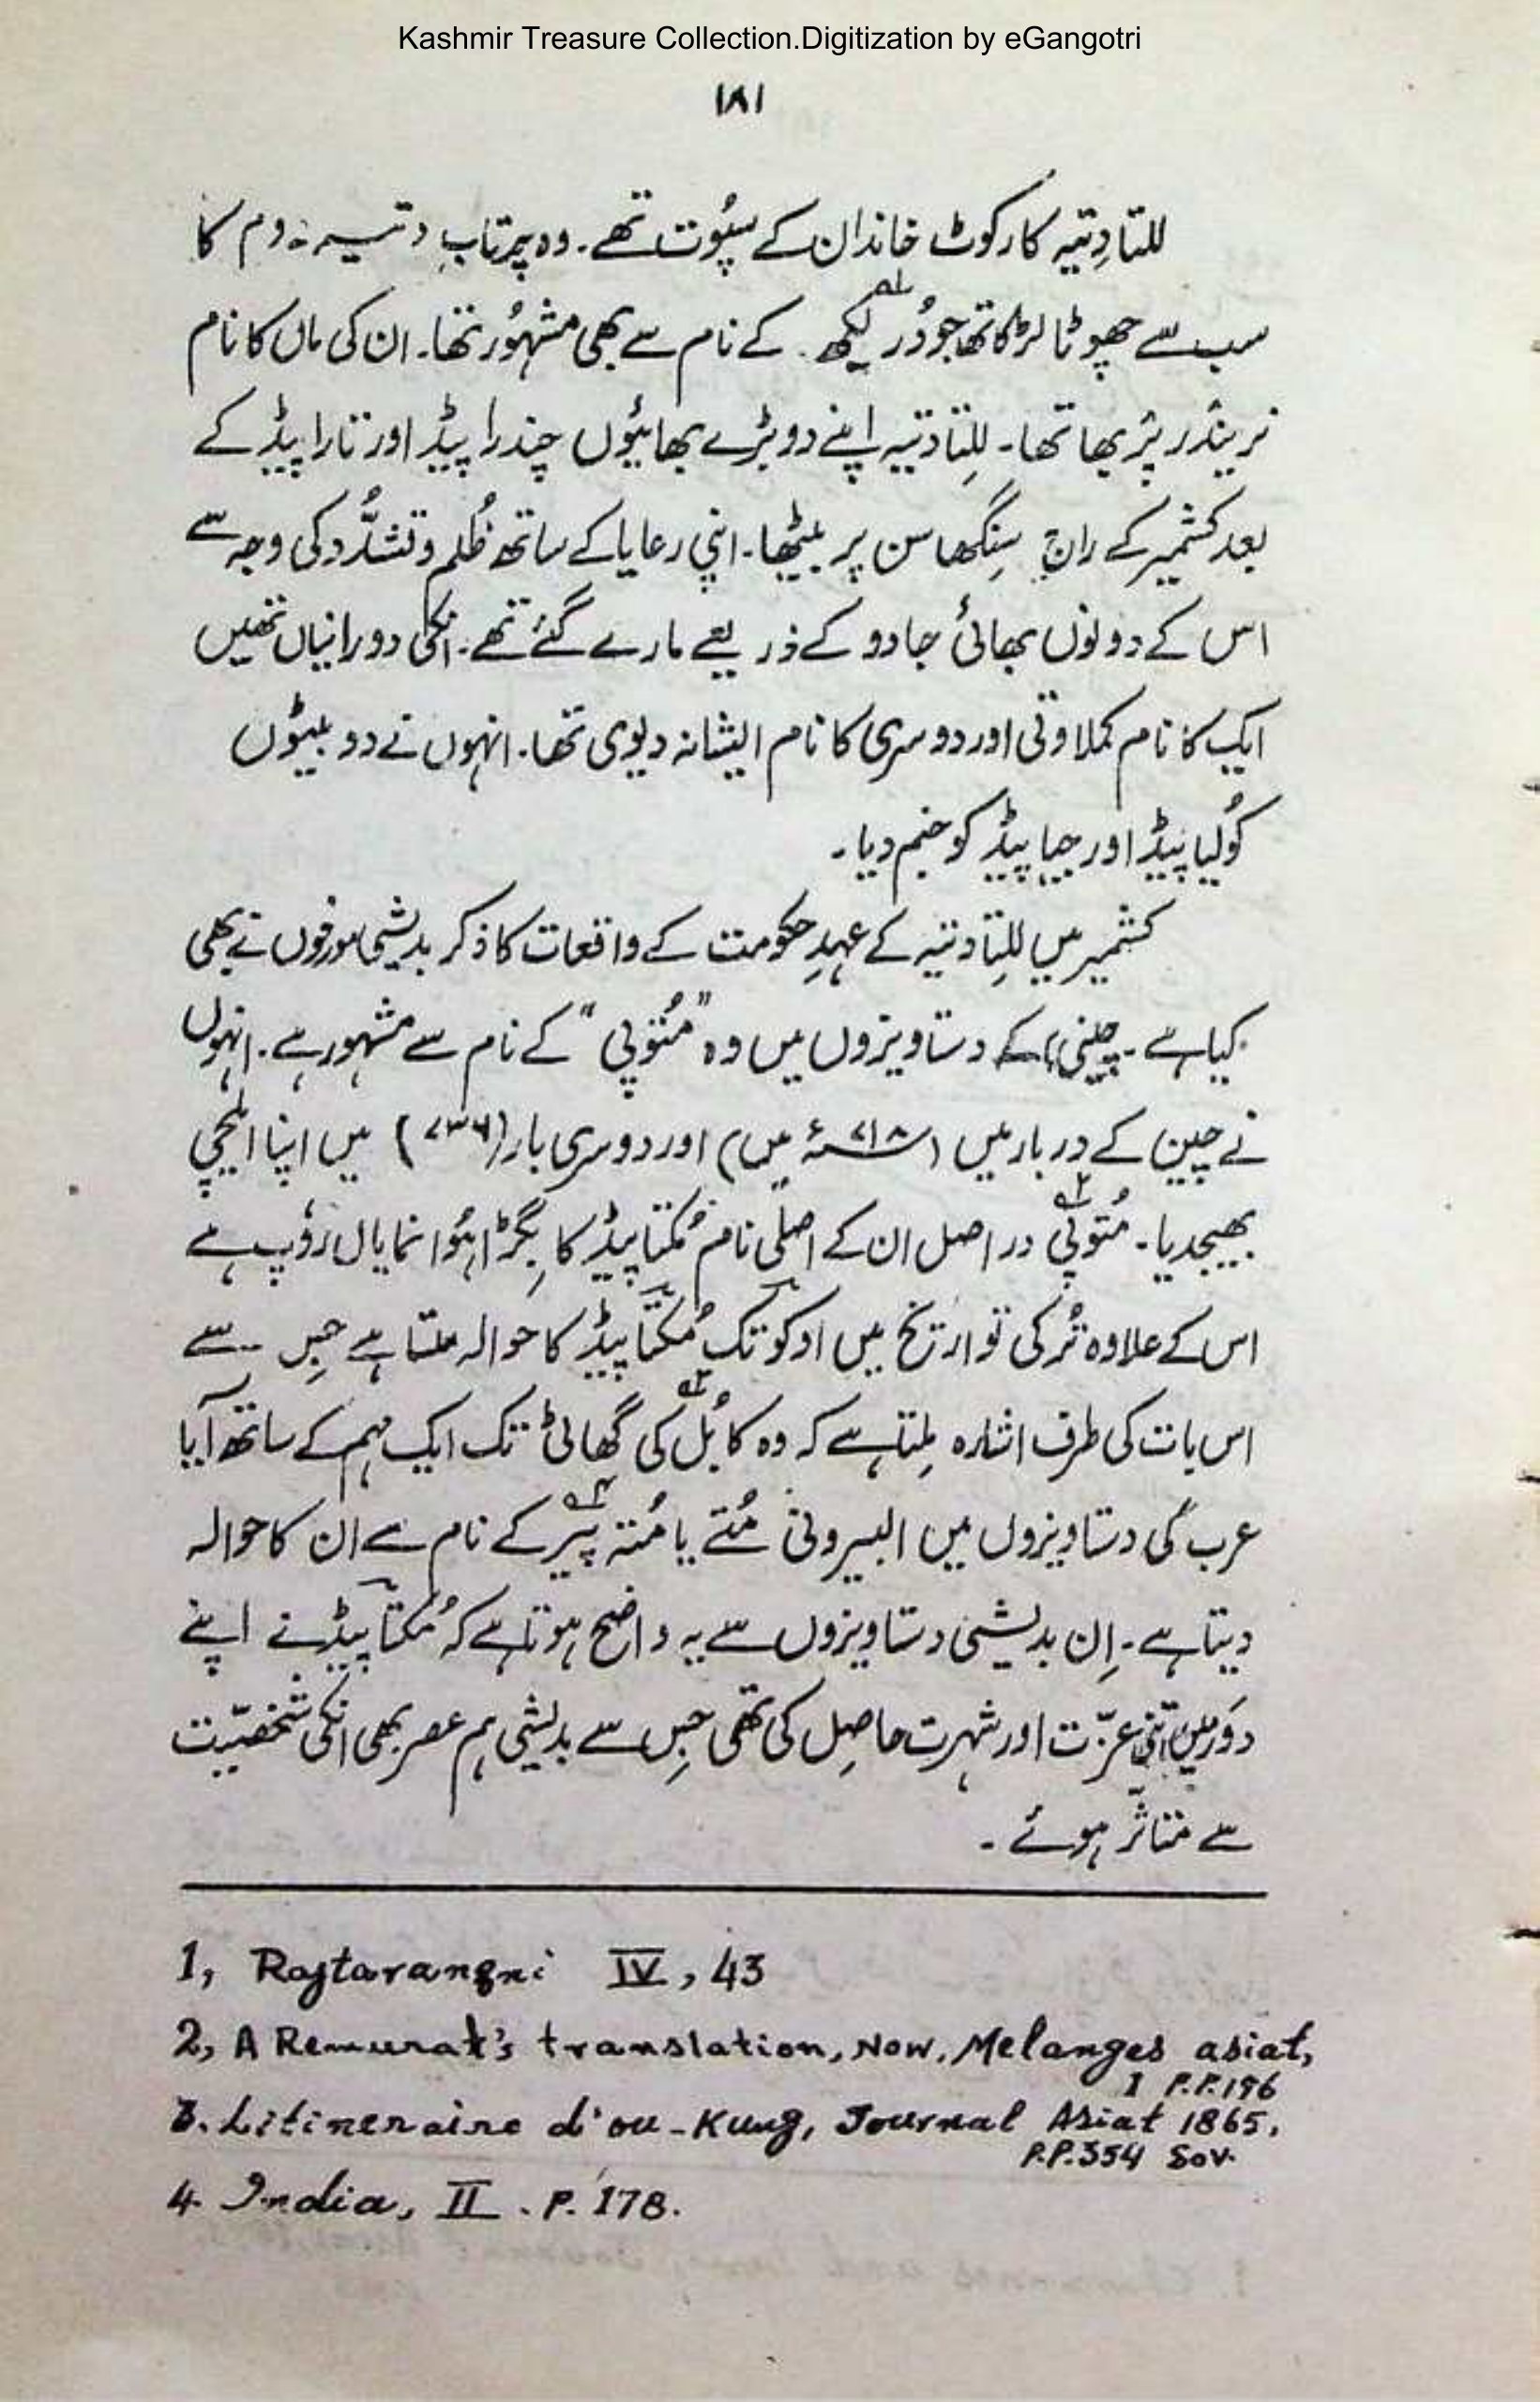 Kashmir Treasure Collection.Digitization by eGangotri
۱۸۱
للتادِتیہ کارکوٹ خاندان کے سپُوت تھے۔ وہ پرتاپ دتیہ دوم کا
سب سے چھوٹا لڑکا تھا جو دُر لبھ ۱؎ کے نام سے بھی مشہُور تھا۔ ان کی ماں کا نام
نریندر پربھا تھا۔ للِتادتیہ اپنے دو بڑے بھائیوں چندراپیڈ اور تاراپیڈ کے
بعد کشمیر کے راج سِنگھاسن پر بیٹھا۔ اپنی رعایا کے ساتھ ظُلم و تشدُّد کی وجہ سے
اس کے دونوں بھائی جادو کے ذریعے مارے گئے تھے۔ انکی دو رانیاں تھیں
ایک کا نام کملاوتی اور دوسری کا نام ایشانہ دیوی تھا۔ انہوں نے دو بیٹوں
کُولیاپیڈ اور جیاپیڈ کو جنم دیا۔
کشمیر میں للِتادتیہ کے عہدِ حکومت کے واقعات کا ذکر بدیشی مورخوں نے بھی
کیا ہے۔ چینی کے دستاویزوں میں وہ ”مُتوپی“ کے نام سے مشہور ہے۔ انہوں
نے چین کے دربار میں (۷۱۸ء میں) اور دوسری بار (۷۳۶) میں اپنا ایلچی
بھیجدیا۔ مُتوپی ۲؎ در اصل ان کے اصلی نام مُکتاپیڈ کا بِگڑا ہُوا نمایاں رُوپ ہے
اس کے علاوہ تُرکی تواریخ میں اوکو تک مُکتاپیڈ کا حوالہ ملتا ہے جِس سے
اس بات کی طرف اشارہ مِلتا ہے کہ وہ کابُل ۳؎ کی گھاٹی تک ایک مہم کے ساتھ آیا
عرب کی دستاویزوں میں البیرونی مُتے یا مُتہ پیر ۴؎ کے نام سے ان کا حوالہ
دیتا ہے۔ اِن بدیشی دستاویزوں سے یہ واضح ہوتا ہے کہ مُکتاپیڈ نے اپنے
دَور میں اتنی عزّت اور شہرت حاصِل کی تھی جِس سے بدیشی ہم عصر بھی انکی شخصیّت
سے متاثر ہوئے ۔
1, Rajtarangni IV, 43
2, A Remurat's translation, Now, Melanges asiat,
I P.P.196
3. Litineraire d'ou-Kung, Journal Asiat 1865,
P.P.354 Sov.
4. India, II . P. 178.